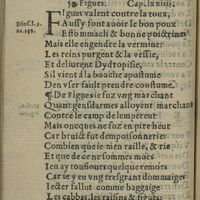 Figues. Cap.lxxiiij.
Figues valent contre la toux,
Aussy font auoir le bon poux
Estommach & bonne poictrine
Mais elle engendre la vermine
Les reins purgent & la vessie,
Et deliurent Dydropisie,
Sil vient à la bouche apostume
Den vser fault prendre coustume.
¶ De Figues ie fuz vng marchant
Quant gensdarmes alloyent marchant
Contre le camp de lempereur
Mais oncques ne fuz en pire heur
Car bruslé fut de
Combien que ie men raille, & rie
Et que de ce ne sommes mors
Ien ay tousiours quelque remors
Car ie y eu vng tresgrant dommaige
Iecter fallut comme baggaige
Les cabbas, les raisins & figues